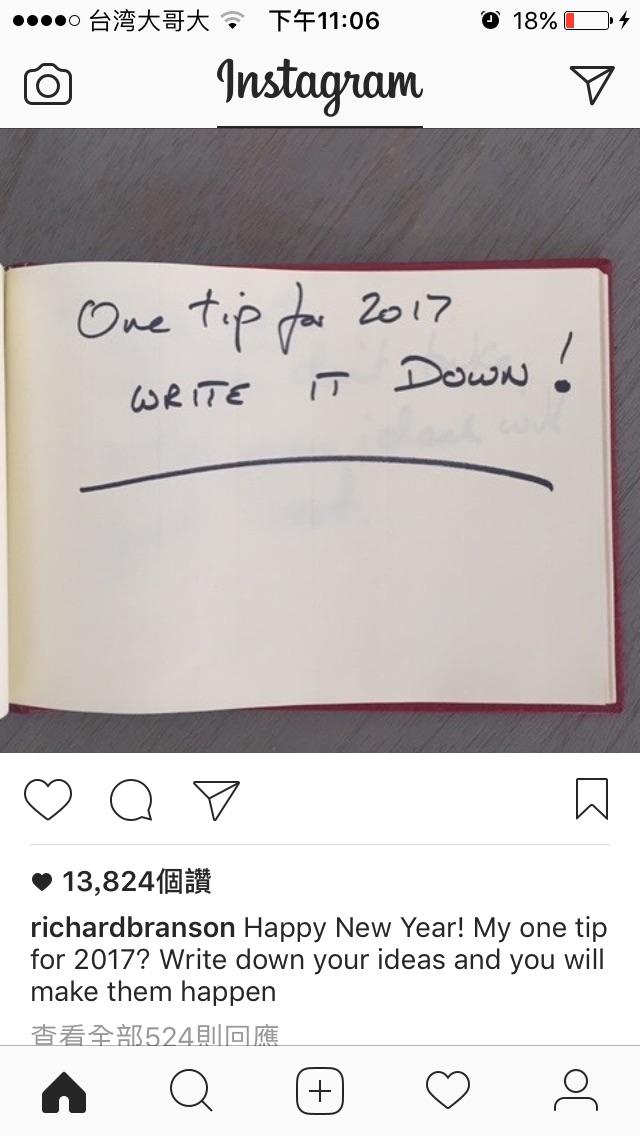 台湾大哥大 下午11:06 18%
Instagram
One tip for 2017
WRITE IT DOWN!
13,824個讚
richardbranson Happy New Year! My one tip
for 2017? Write down your ideas and you will
make them happen
查看全部524則回應